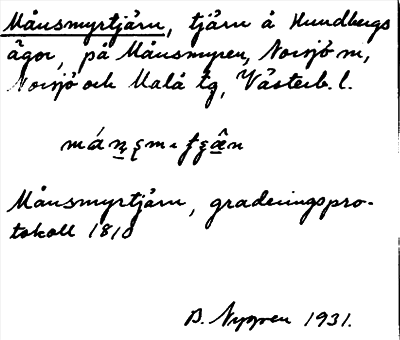 Månsmyrtjärn, tjärn å Hundbergs
ägor, på Månsmyren, Norsjö sn,
Norsjö och Malå tg, Västerb. l.
Månsmyrtjärn, graderingspro-
tokoll 1810
B. Nygren 1931.